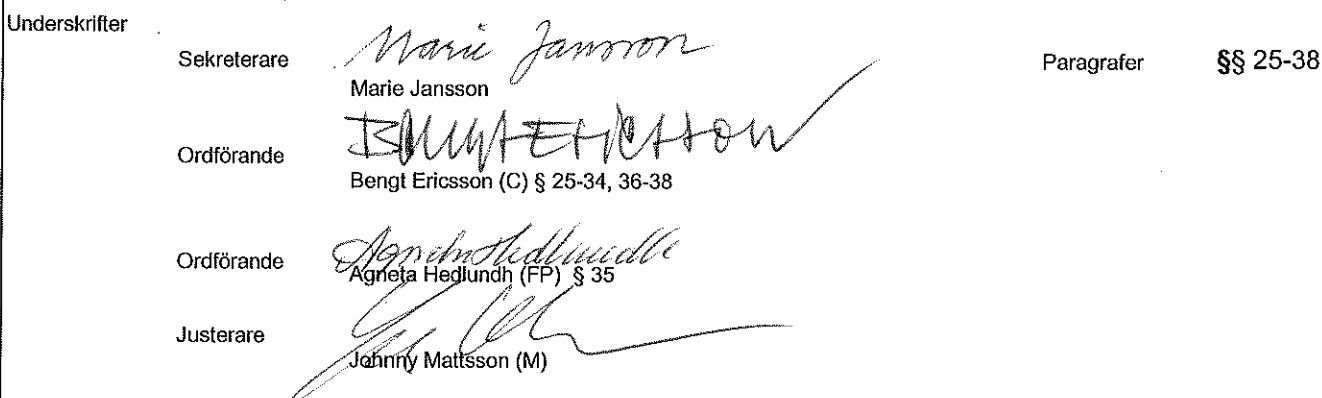 Underskrifter
Sekreterare Marie Jansson Paragrafer §§ 25-38
Marie Jansson
Ordförande Bengt Ericsson
Bengt Ericsson (C) § 25-34, 36-38
Ordförande Agneta Hedlundh
Agneta Hedlundh (FP) § 35
Justerare
Johnny Mattsson (M)